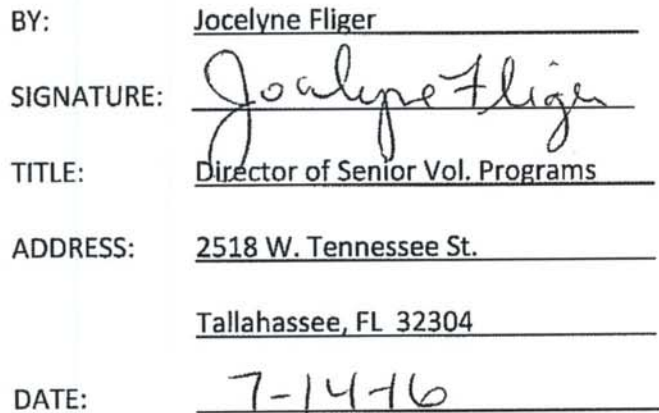 BY: Jocelyne Fliger
SIGNATURE: Jocelyne Fliger
TITLE: Director of Senior Vol. Programs
ADDRESS: 2518 W. Tennessee St.
Tallahassee, FL 32304
DATE: 7-14-16